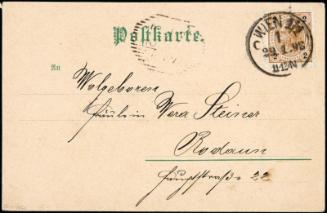 Postkarte.
WIEN
An
Wolgeboren
Fräulein Vera Steiner
Rodaun
Hauptstraße 22